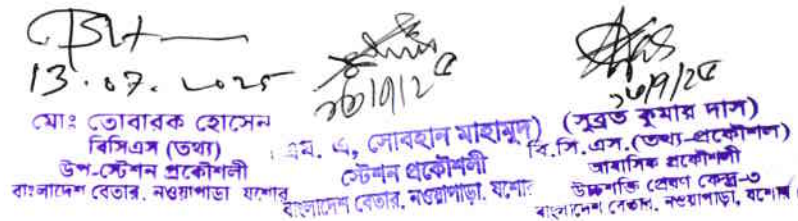 13.07.2025
মোঃ তোবারক হোসেন
বিসিএস (তথ্য)
উপ-স্টেশন প্রকৌশলী
বাংলাদেশ বেতার, নওয়াপাড়া যশোর
এম. এ, সোবহান মাহামুদ)
স্টেশন প্রকৌশলী
বাংলাদেশ বেতার, নওয়াপাড়া, যশোর
(সুব্রত কুমার দাস)
বি.সি.এস.(তথ্য-প্রকৌশল)
আবাসিক প্রকৌশলী
উচ্চশক্তি প্রেরণ কেন্দ্র-৩
বাংলাদেশ বেতার, নওয়াপাড়া, যশোর